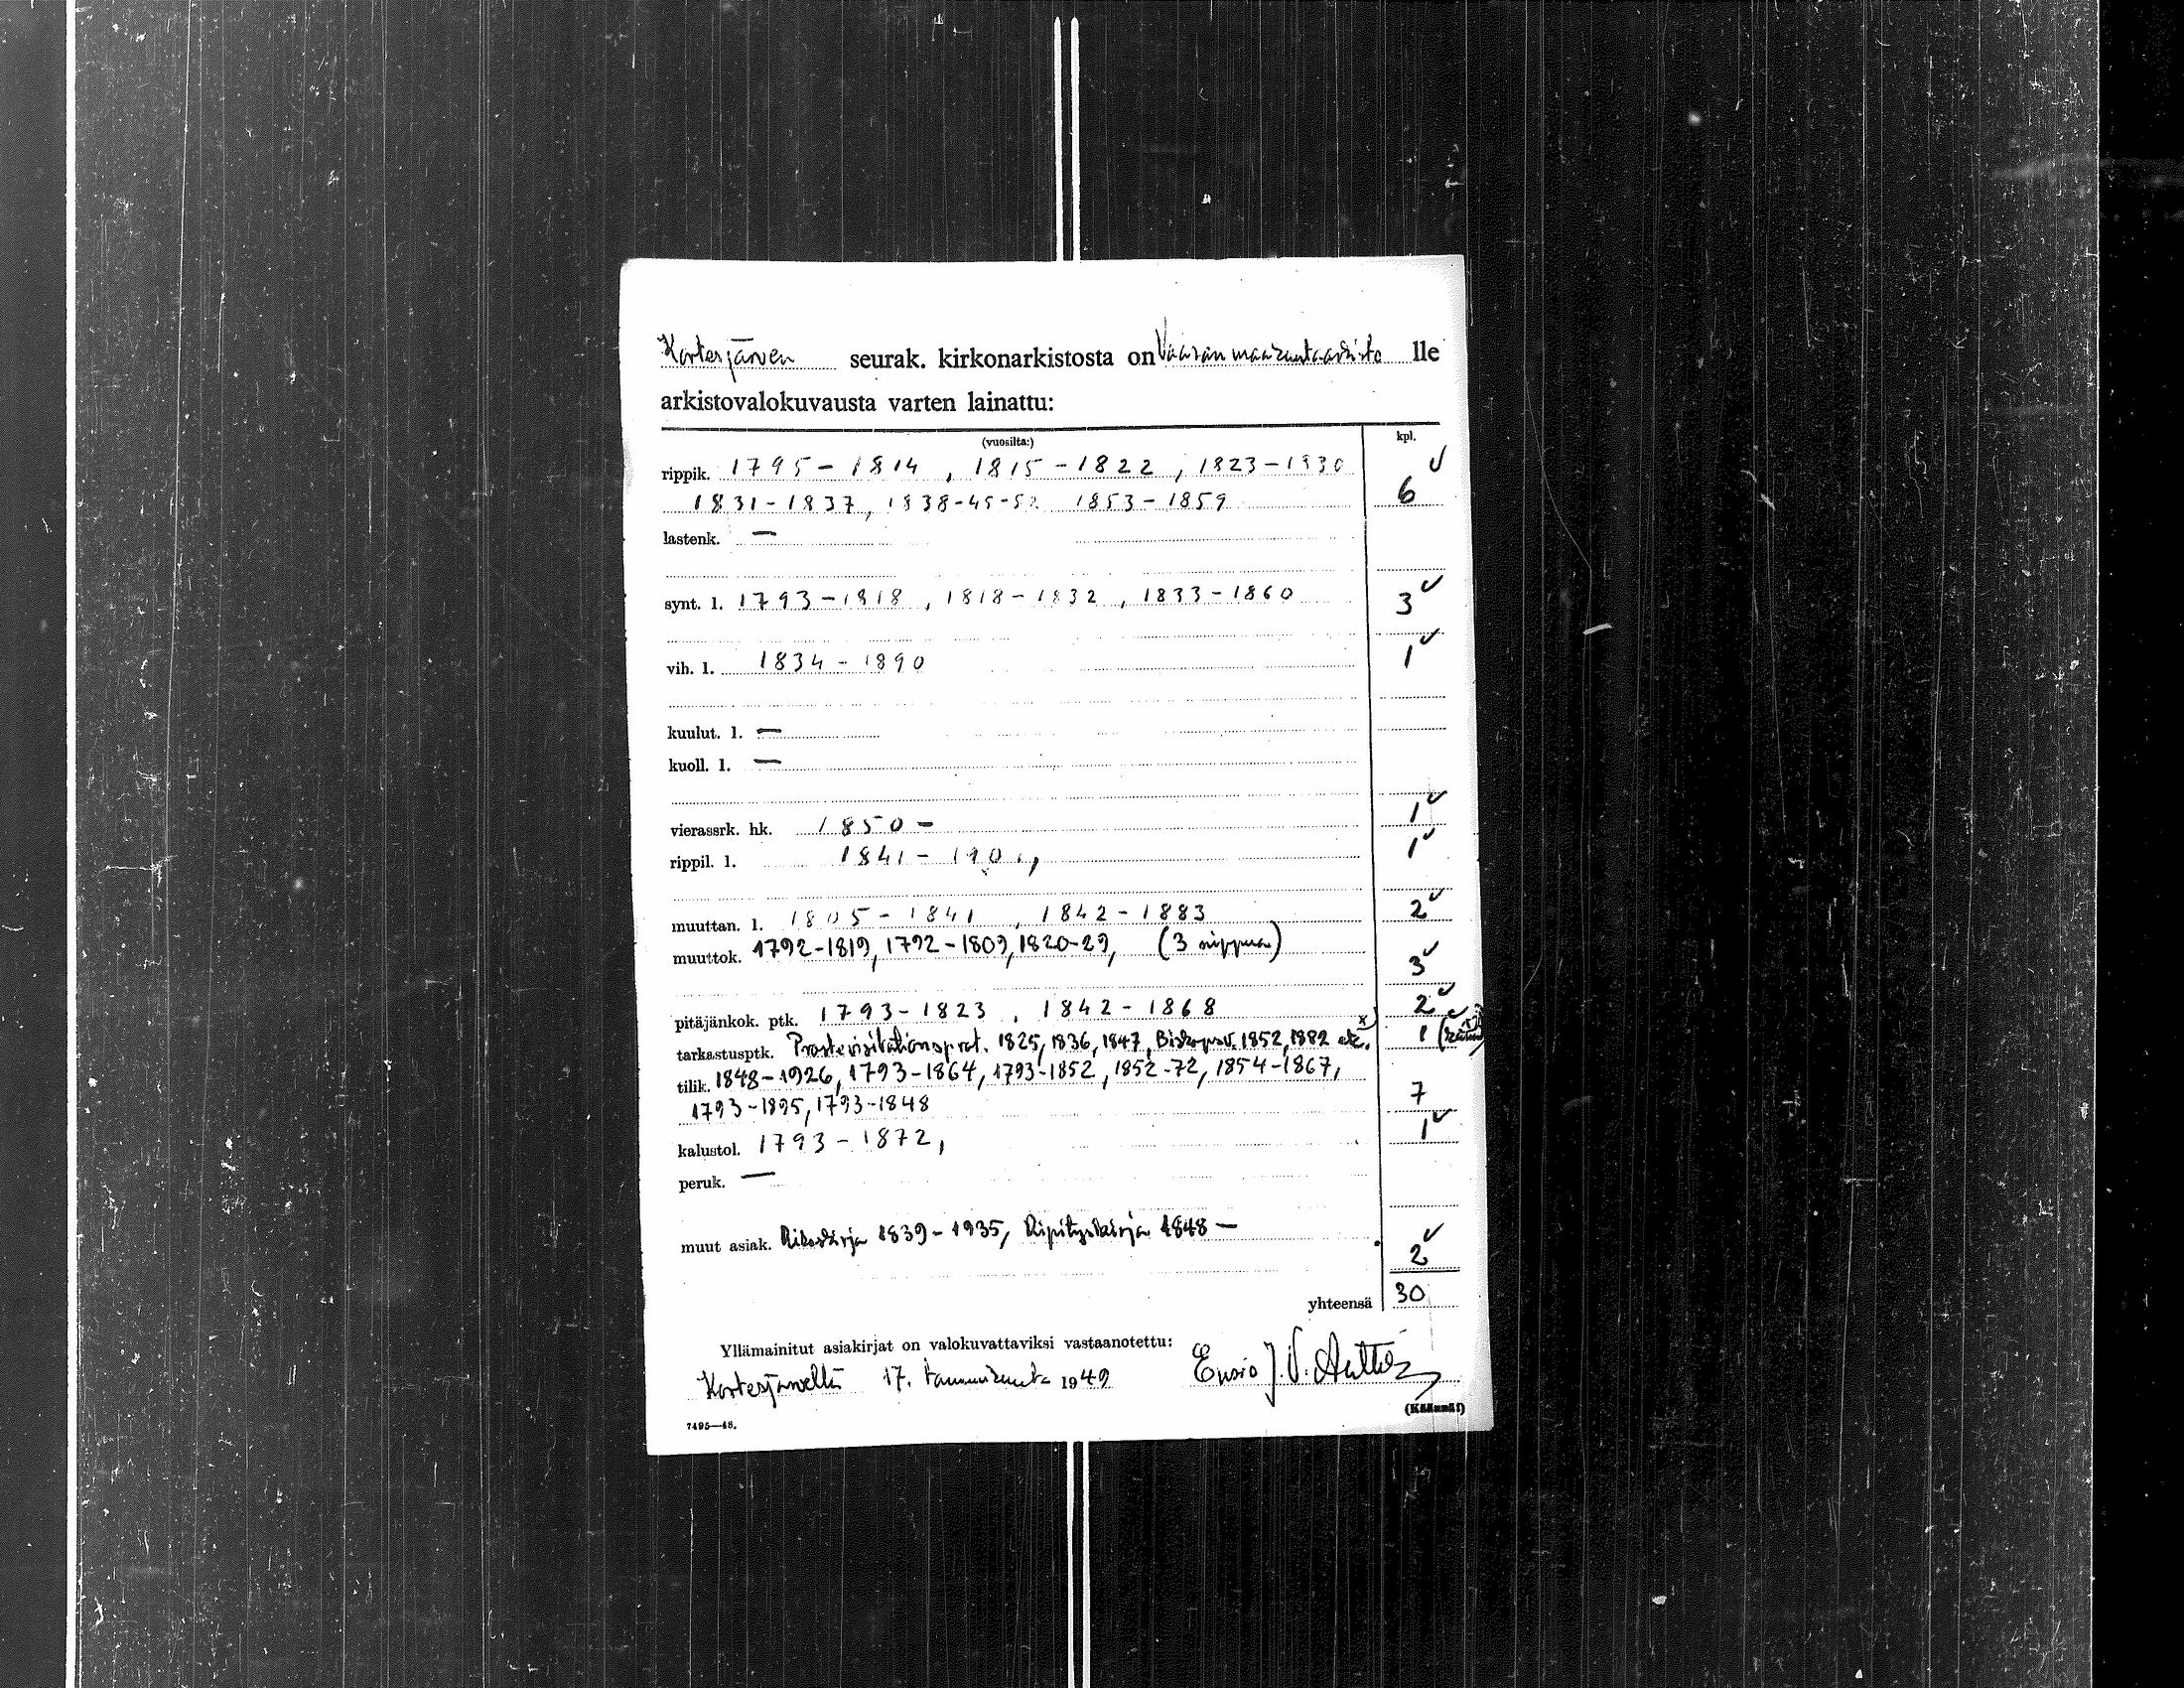 Kortesjärven seurak. kirkonarkistosta on Vaasan maakunta-arkisto lle
arkistovalokuvausta varten lainattu:
(vuosilta:) kpl.
rippik. 1795-1814, 1815-1822, 1823-1830 ✓
1831-1837, 1838-45-52 1853-1859 6
lastenk. —
synt. l. 1793-1818, 1818-1832, 1833-1860 3 ✓
vih. l. 1834-1890 1 ✓
kuulut. l. —
kuoll. l. —
vierassrk. hk. 1850- 1 ✓
rippil. l. 1841- 1 ✓
muuttan. l. 1805-1841, 1842-1883 2 ✓
muuttok. 1792-1819, 1792-1809, 1820-29, (3 nippua) 3 ✓
pitäjänkok. ptk. 1793-1823, 1842-1868 2 ✓
tarkastusptk. Prostevisitationsprot. 1825, 1836, 1847, Biskopsv. 1852, 1882 etc. x) 1 ✓
tilik. 1848-1926, 1793-1864, 1793-1852, 1852-72, 1854-1867,
1793-1895, 1793-1848 7
kalustol. 1793-1872, 1 ✓
peruk. —
muut asiak. Rikoskirja 1839-1935, Ripityskirja 1848- 2 ✓
yhteensä 30
Yllämainitut asiakirjat on valokuvattaviksi vastaanotettu:
Kortesjärvellä 17. tammikuuta 1949 Ensio J. V.
(Käännä!)
7495—48.